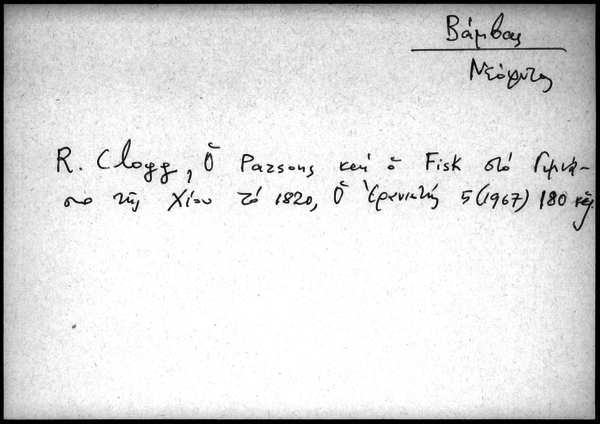 Βάμβας
Νεόφυτος
R. Clogg, Ὁ Parsons καί ὁ Fisk στό Γυμνά-
σιο τῆς Χίου τό 1820, Ὁ Ἐρανιστής 5 (1967) 180 κἑ.